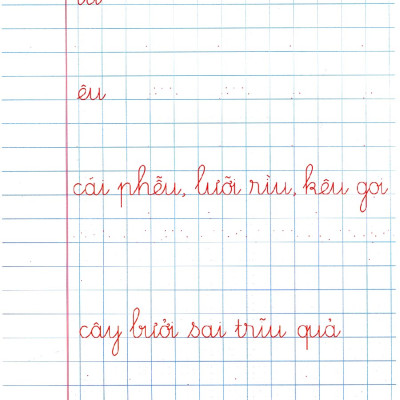 êu
cái phễu, lưỡi rìu, kêu gọi
cây bưởi sai trĩu quả